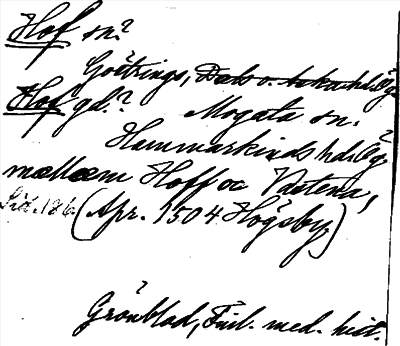 Hof sn?
Göstrings, Dals o. Boba hdr Ög
Hof gd.? Mogata sn.
Hammarkinds hd. Ög?
mællæm Hoff oc Vastena,
Sid. 186. (Apr. 1504 Högsby)
Grönblad, Finl. med. hist.